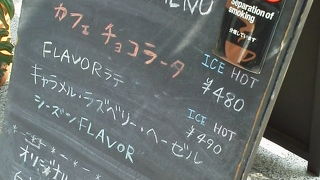 MENU
separation of smoking
分煙しています
カフェ チョコラータ
ICE HOT
¥480
FLAVORラテ
キャラメル・ラズベリー・ヘーゼル
ICE HOT
¥490
シーズンFLAVOR
オリジナル